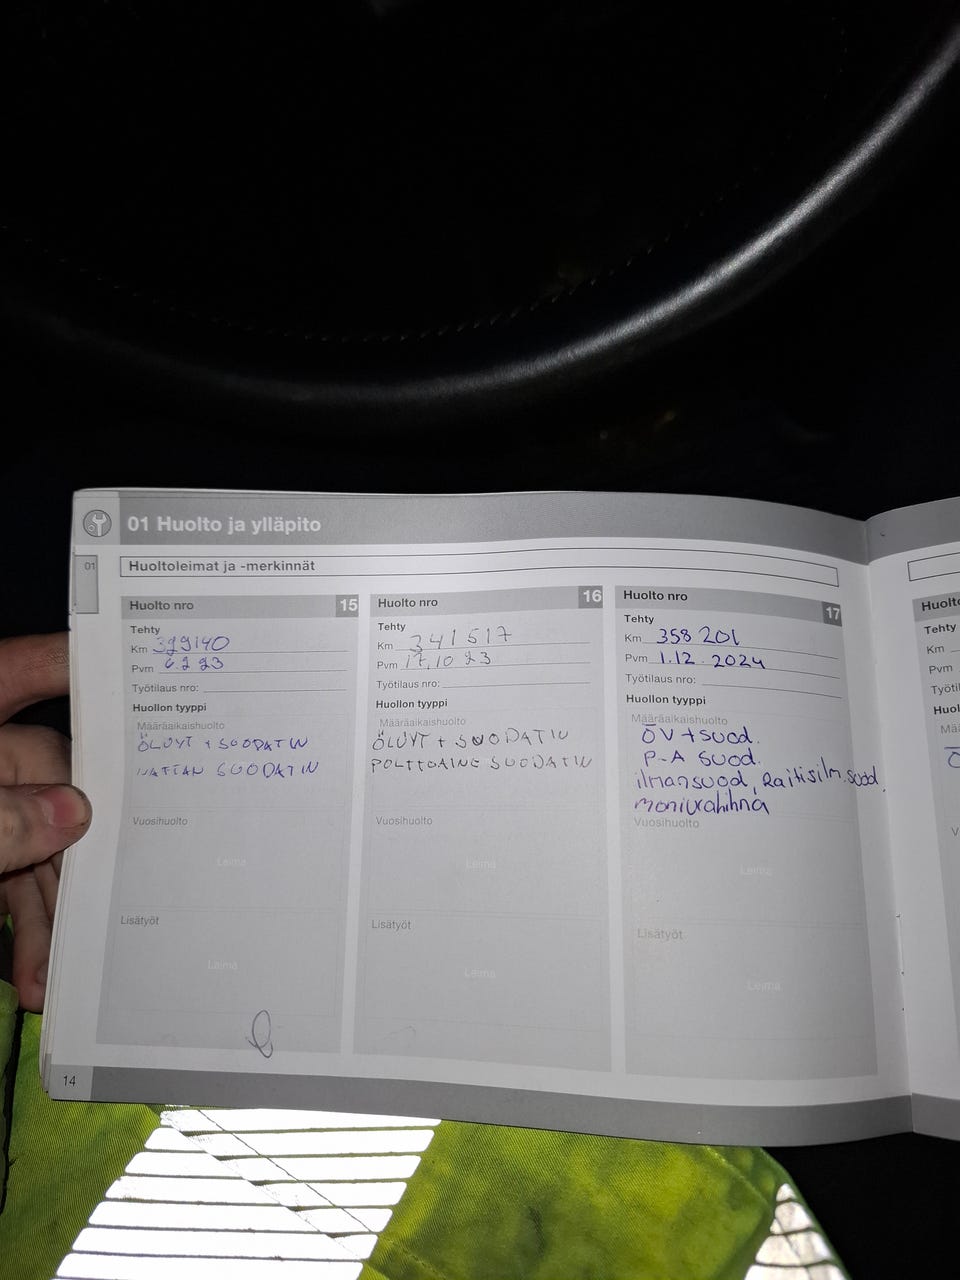 01 Huolto ja ylläpito
01
Huoltoleimat ja -merkinnät
Huolto nro 15
Tehty
Km 329140
Pvm 6.2 23
Työtilaus nro:
Huollon tyyppi
Määräaikaishuolto
ÖLJYT + SUODATIN
SUODATIN
Vuosihuolto
Leima
Lisätyöt
Leima
Huolto nro 16
Tehty
Km 341517
Pvm 17.10 23
Työtilaus nro:
Huollon tyyppi
Määräaikaishuolto
ÖLJYT + SUODATIN
POLTTOAINE SUODATIN
Vuosihuolto
Leima
Lisätyöt
Leima
Huolto nro 17
Tehty
Km 358 201
Pvm 1.12.2024
Työtilaus nro:
Huollon tyyppi
Määräaikaishuolto
ÖV+suod.
P-A suod.
ilmansuod, Raitisilm.suod,
moniurahihna
Vuosihuolto
Leima
Lisätyöt
Leima
14
Huolto
Tehty
Km
Pvm